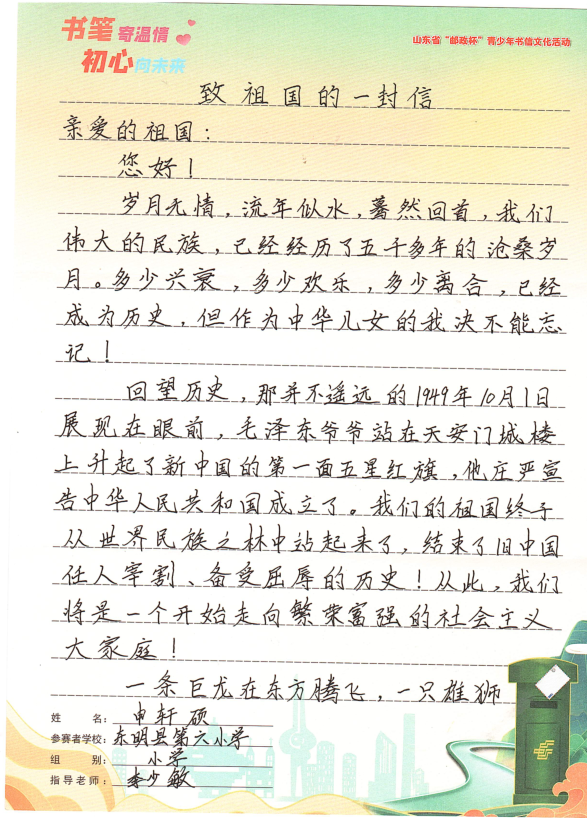 书笔寄温情
初心向未来
山东省“邮政杯”青少年书信文化活动
致祖国的一封信
亲爱的祖国：
您好！
岁月无情，流年似水，蓦然回首，我们
伟大的民族，已经经历了五千多年的沧桑岁
月。多少兴衰，多少欢乐，多少离合，已经
成为历史，但作为中华儿女的我决不能忘
记！
回望历史，那并不遥远的1949年10月1日
展现在眼前，毛泽东爷爷站在天安门城楼
上升起了新中国的第一面五星红旗，他庄严宣
告中华人民共和国成立了。我们的祖国终于
从世界民族之林中站起来了，结束了旧中国
任人宰割、备受屈辱的历史！从此，我们
将是一个开始走向繁荣富强的社会主义
大家庭！
一条巨龙在东方腾飞，一只雄狮
姓名：申轩硕
参赛者学校：东明县第六小学
组别：小学
指导老师：李少敏